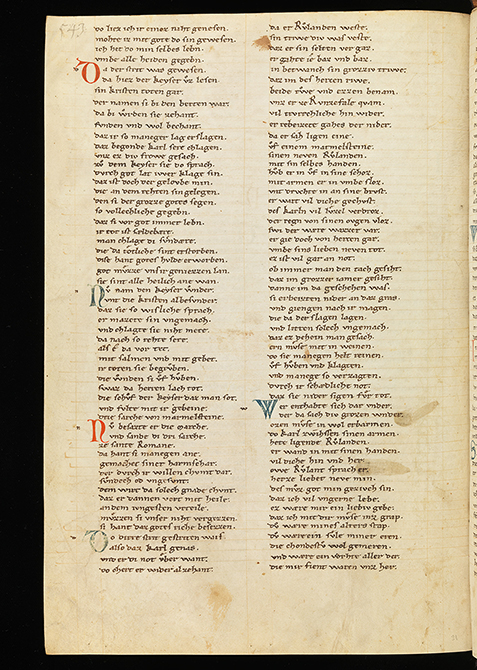 543
do liez ich ir einoz niht genesen.
mohte ez mit gote do sin gewesen.
ich het do min selbes lebn.
umbe alle heiden gegebn.
Da der strit was gewesen.
da hiez der keyser uz lesen.
sin kristen toten gar.
der namen si bi den herren war.
da bi wrden sie zehant.
funden und wol bechant.
daz ir so maneger lag erslagen.
daz begonde karl sere chlagen.
unz er div stimme gesach.
zu dem keyser sie do sprach.
durch got lat iwer klage sin.
daz ist doch der geloube min.
die an dem rehten sin gelegen.
den si der grozze gotes segen.
so vollechliche gegebn.
daz si vor got immer lebn.
ir tot ist seldebere.
man chlage di sundare.
die da totliche sint erstorben.
dise hant gotes hulde erworben.
got muzze uns ir geniezzen lan.
sie sint alle heilich ane wan.
Nu nam den keyser wnder.
umt die kristen albesunder.
daz sie so wisliche sprach.
er mazete sin ungemach.
und chlagte si niht mere.
da nach so rehte sere.
alse da vor tet.
mit salmen und mit gebet.
ir toten sie begruben.
die wnden si uf huben.
swaz da herren lach tot.
die schuf der keyser dar man sot.
und fulte mit ir gebeine.
drie sarche von marmelsteine.
Nu besazte er die marche.
und sande di dri sarche.
ze sante Romane.
da hant si manegen ane.
gemachet siner harmschar.
der durch ir willen chumt dar.
sundech oder ungesunt.
dem wirt da solech gnade chunt.
daz er dannen vert mit heile.
an dem iungesten teile.
muzzen si unser niht vergezzen.
si hant daz gotes riche besezzen.
Do dirre strit gestriten wart.
also daz karl genas.
und er di not uber want.
do chert er wider alzehant.
da er Rulanden weste.
sin triwe div was veste.
daz er sin selten ver gaz.
er gahte ie baz und baz.
in betwanch sin grozziv triwe.
daz im des herren riwe.
beide riwe und erzen benam.
unz er ze Runzefale quam.
vil trurechliche hin wider.
er erbeizete gahes der nider.
da er sah ligen eine.
uf einem marmelsteine.
sinen neven Rulanden.
mit sin selbes handen.
hub er in uf in sine schoz.
mit armen er in umbe sloz.
unt druchte in an sine brust.
er wart vil dicke gechust.
des karln vil luzel verdroz.
der regn von sinen ougen vloz.
swi der water wazzer war.
er gie doch von herzen gar.
umbe sins lieben neven tot.
ez ist vil gar an not.
ob immer man den tach gesiht.
daz im grozzer iamer gesiht.
danne im da geschehen was.
si erbeizten nider an daz gras.
und giengen nach ir magen.
die da der slagen lagen.
und liten solech ungemach.
daz ez nehein man gesach.
ern muse mit in weinen.
do sie manegen helt reinen.
uf huben und klagten.
und manege so verzagten.
durch ir schedliche not.
daz sie nider sigen fur tot.
Wer enthabte sich daz under.
der da sich div grozen wnder.
ezen muse in wol erbarmen.
do karl zwischen sinen armen.
hete ligende Rulanden.
er wand in mit sinen handen.
vil dicke hin und her.
owe Rulant sprach er.
herze lieber neve min.
des muz got min gezivch sin.
daz ich vil ungerne lebe.
ez ware mir ein liebiv gebe.
daz ich mit dir muse inz grap.
du ware mines alters stap.
du ware ein sule miner eren.
die chondestu wol gemeren.
und ware ein vorhte aller der.
die mir fient waren unz her.